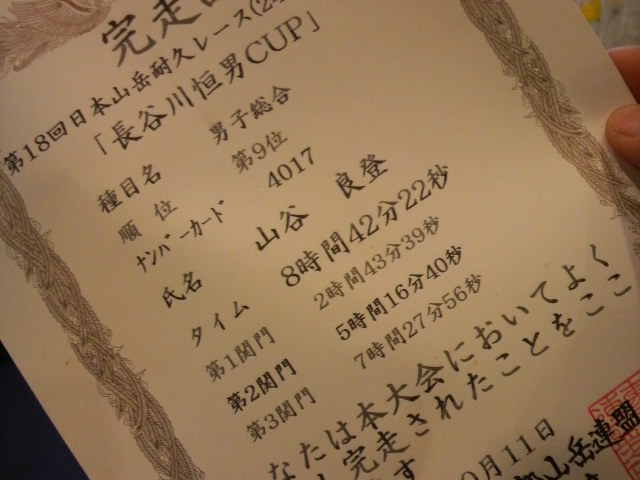 完走
第18回日本山岳耐久レース(24
「長谷川恒男CUP」
種目名 男子総合
順 位 第9位
ナンバーカード 4017
氏名 山谷 良登
タイム 8時間42分22秒
第1関門 2時間43分39秒
第2関門 5時間16分40秒
第3関門 7時間27分56秒
なたは本大会においてよく
完走されたことをここ
す
月11日
山岳連盟